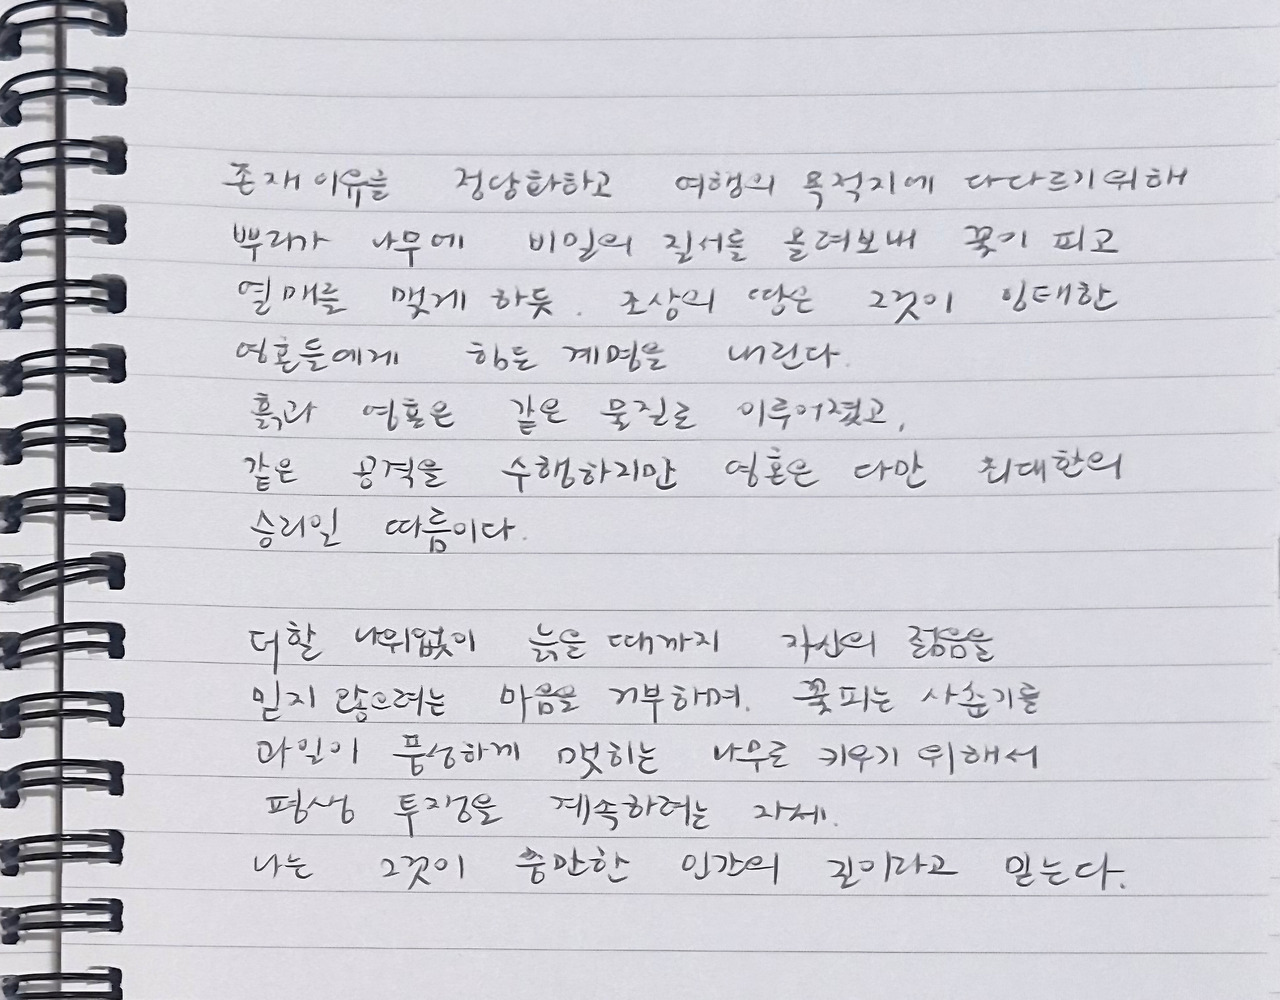 존재이유를 정당화하고 여행의 목적지에 다다르기위해
뿌리가 나무에 비밀의 질서를 올려보내 꽃이 피고
열매를 맺게 하듯. 조상의 땅은 그것이 잉태한
영혼들에게 힘든 계명을 내린다.
흙과 영혼은 같은 물질로 이루어졌고,
같은 공격을 수행하지만 영혼은 다만 최대한의
승리일 따름이다.
더할 나위없이 늙을 때까지 자신의 젊음을
믿지 않으려는 마음을 거부하며. 꽃피는 사춘기를
과일이 풍성하게 맺히는 나무로 키우기 위해서
평생 투쟁을 계속하려는 자세.
나는 그것이 충만한 인간의 길이라고 믿는다.